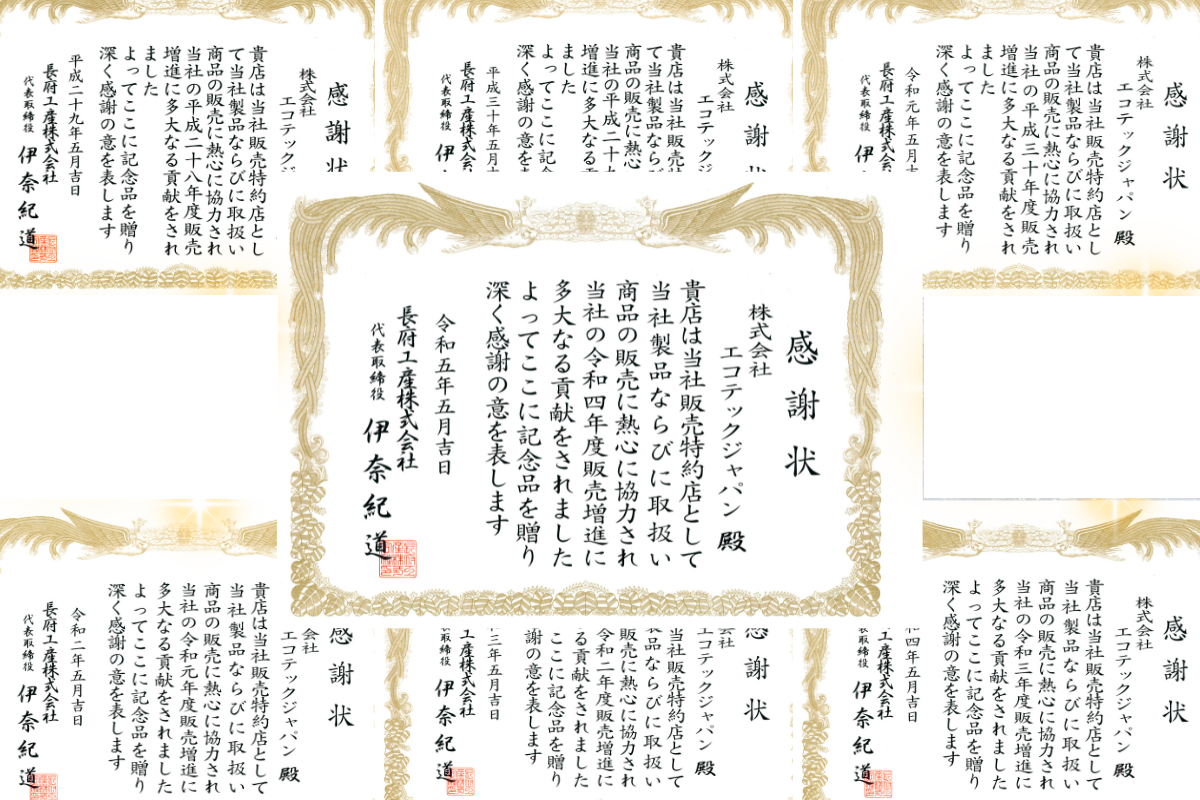 感謝状
株式会社
エコテックジ
貴店は当社販売特約店とし
て当社製品ならびに取扱い
商品の販売に熱心に協力され
当社の平成二十八年度販売
増進に多大なる貢献をされ
ました
よってここに記念品を贈り
深く感謝の意を表します
平成二十九年五月吉日
長府工産株式会社
代表取締役 伊奈紀道
感謝状
株式会社
エコテックジ
貴店は当社販売特
て当社製品ならび
商品の販売に熱心
当社の平成二十九
増進に多大なる
ました
よってここに記念
深く感謝の意を表
平成三十年五月吉
長府工産株式会社
代表取締役 伊
感謝状
株式会社
エコテックジャパン 殿
貴店は当社販売特約店とし
て当社製品ならびに取扱い
商品の販売に熱心に協力され
当社の平成三十年度販売
増進に多大なる貢献をされ
ました
よってここに記念品を贈り
深く感謝の意を表します
令和元年五月吉
長府工産株式会社
代表取締役 伊
感謝状
株式会社
エコテックジャパン 殿
貴店は当社販売特約店として
当社製品ならびに取扱い
商品の販売に熱心に協力され
当社の令和四年度販売増進に
多大なる貢献をされました
よってここに記念品を贈り
深く感謝の意を表します
令和五年五月吉日
長府工産株式会社
代表取締役 伊奈紀道
感謝状
会社
エコテックジャパン 殿
貴店は当社販売特約店として
当社製品ならびに取扱い
商品の販売に熱心に協力され
当社の令和元年度販売増進に
多大なる貢献をされました
よってここに記念品を贈り
深く感謝の意を表します
令和二年五月吉日
長府工産株式会社
代表取締役 伊奈紀道
感謝状
会社
エコテックジャパン 殿
当社販売特約店として
製品ならびに取扱い
販売に熱心に協力され
令和二年度販売増進に
る貢献をされました
ここに記念品を贈り
謝の意を表します
三年五月吉日
工産株式会社
取締役 伊奈紀道
感謝状
株式会社
エコテックジャパン 殿
貴店は当社販売特約店として
当社製品ならびに取扱い
商品の販売に熱心に協力され
当社の令和三年度販売増進に
多大なる貢献をされました
よってここに記念品を贈り
深く感謝の意を表します
和四年五月吉日
工産株式会社
取締役 伊奈紀道